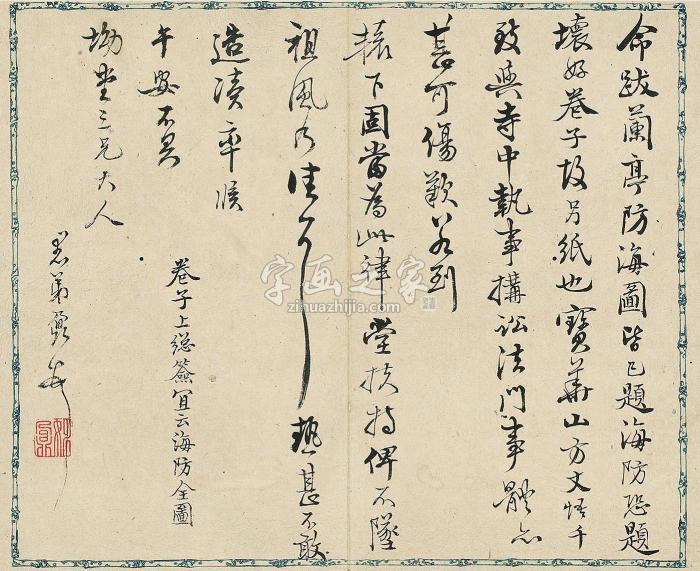 命跋蘭亭防海圖皆已題海防恐題
壞好卷子故另紙也寶華山方丈悟千
致與寺中執事搆訟法門事體亦
甚可傷歎公到
轅下固當為此肆堂扶持俾不墜
祖風乃佳耳熱甚不敢
造凟率候
午安不具
坳堂三兄大人
愚弟鼐
卷子上總簽宜云海防全圖
字画之家
zihuazhijia.com